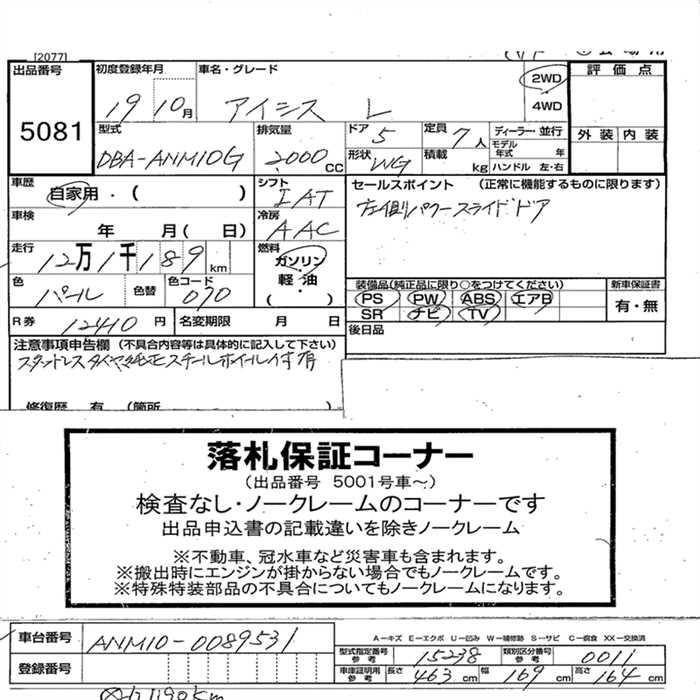 [2077]
出品番号 初度登録年月 車名・グレード 2WD 評価点
5081 19 10月 アイシス L 4WD
外装 内装
型式 排気量 ドア 5 定員 7人 ディーラー・並行
DBA-ANM10G 2000cc 形状 WG 積載 kg モデル年式 年 ハンドル 左・右
車歴 自家用・( ) シフト IAT セールスポイント (正常に機能するものに限ります)
車検 年 月( 日) 冷房 AAC 左側パワースライドドア
走行 12万1千189km 燃料 ガソリン 軽油 ( )
色 パール 色替 色コード 070 装備品(純正品に限り○をつけてください) 新車保証書
PS PW ABS エアB 有・無
SR ナビ TV
R券 12410円 名変期限 月 日 後日品
注意事項申告欄 (不具合内容等は具体的に記入して下さい)
スタッドレスタイヤ純正スチールホイール付有
修復歴 有 (箇所 )
落札保証コーナー
(出品番号 5001号車~)
検査なし・ノークレームのコーナーです
出品申込書の記載違いを除きノークレーム
※不動車、冠水車など災害車も含まれます。
※搬出時にエンジンが掛からない場合でもノークレームです。
※特殊特装部品の不具合についてもノークレームになります。
A−キズ E−エクボ U−凹み W−補修跡 S−サビ C−腐食 XX−交換済
車台番号 ANM10-0089531 型式指定番号 参考 15238 類別区分番号 参考 0011
登録番号 車庫証明用 参考 長さ 463cm 幅 169cm 高さ 164cm